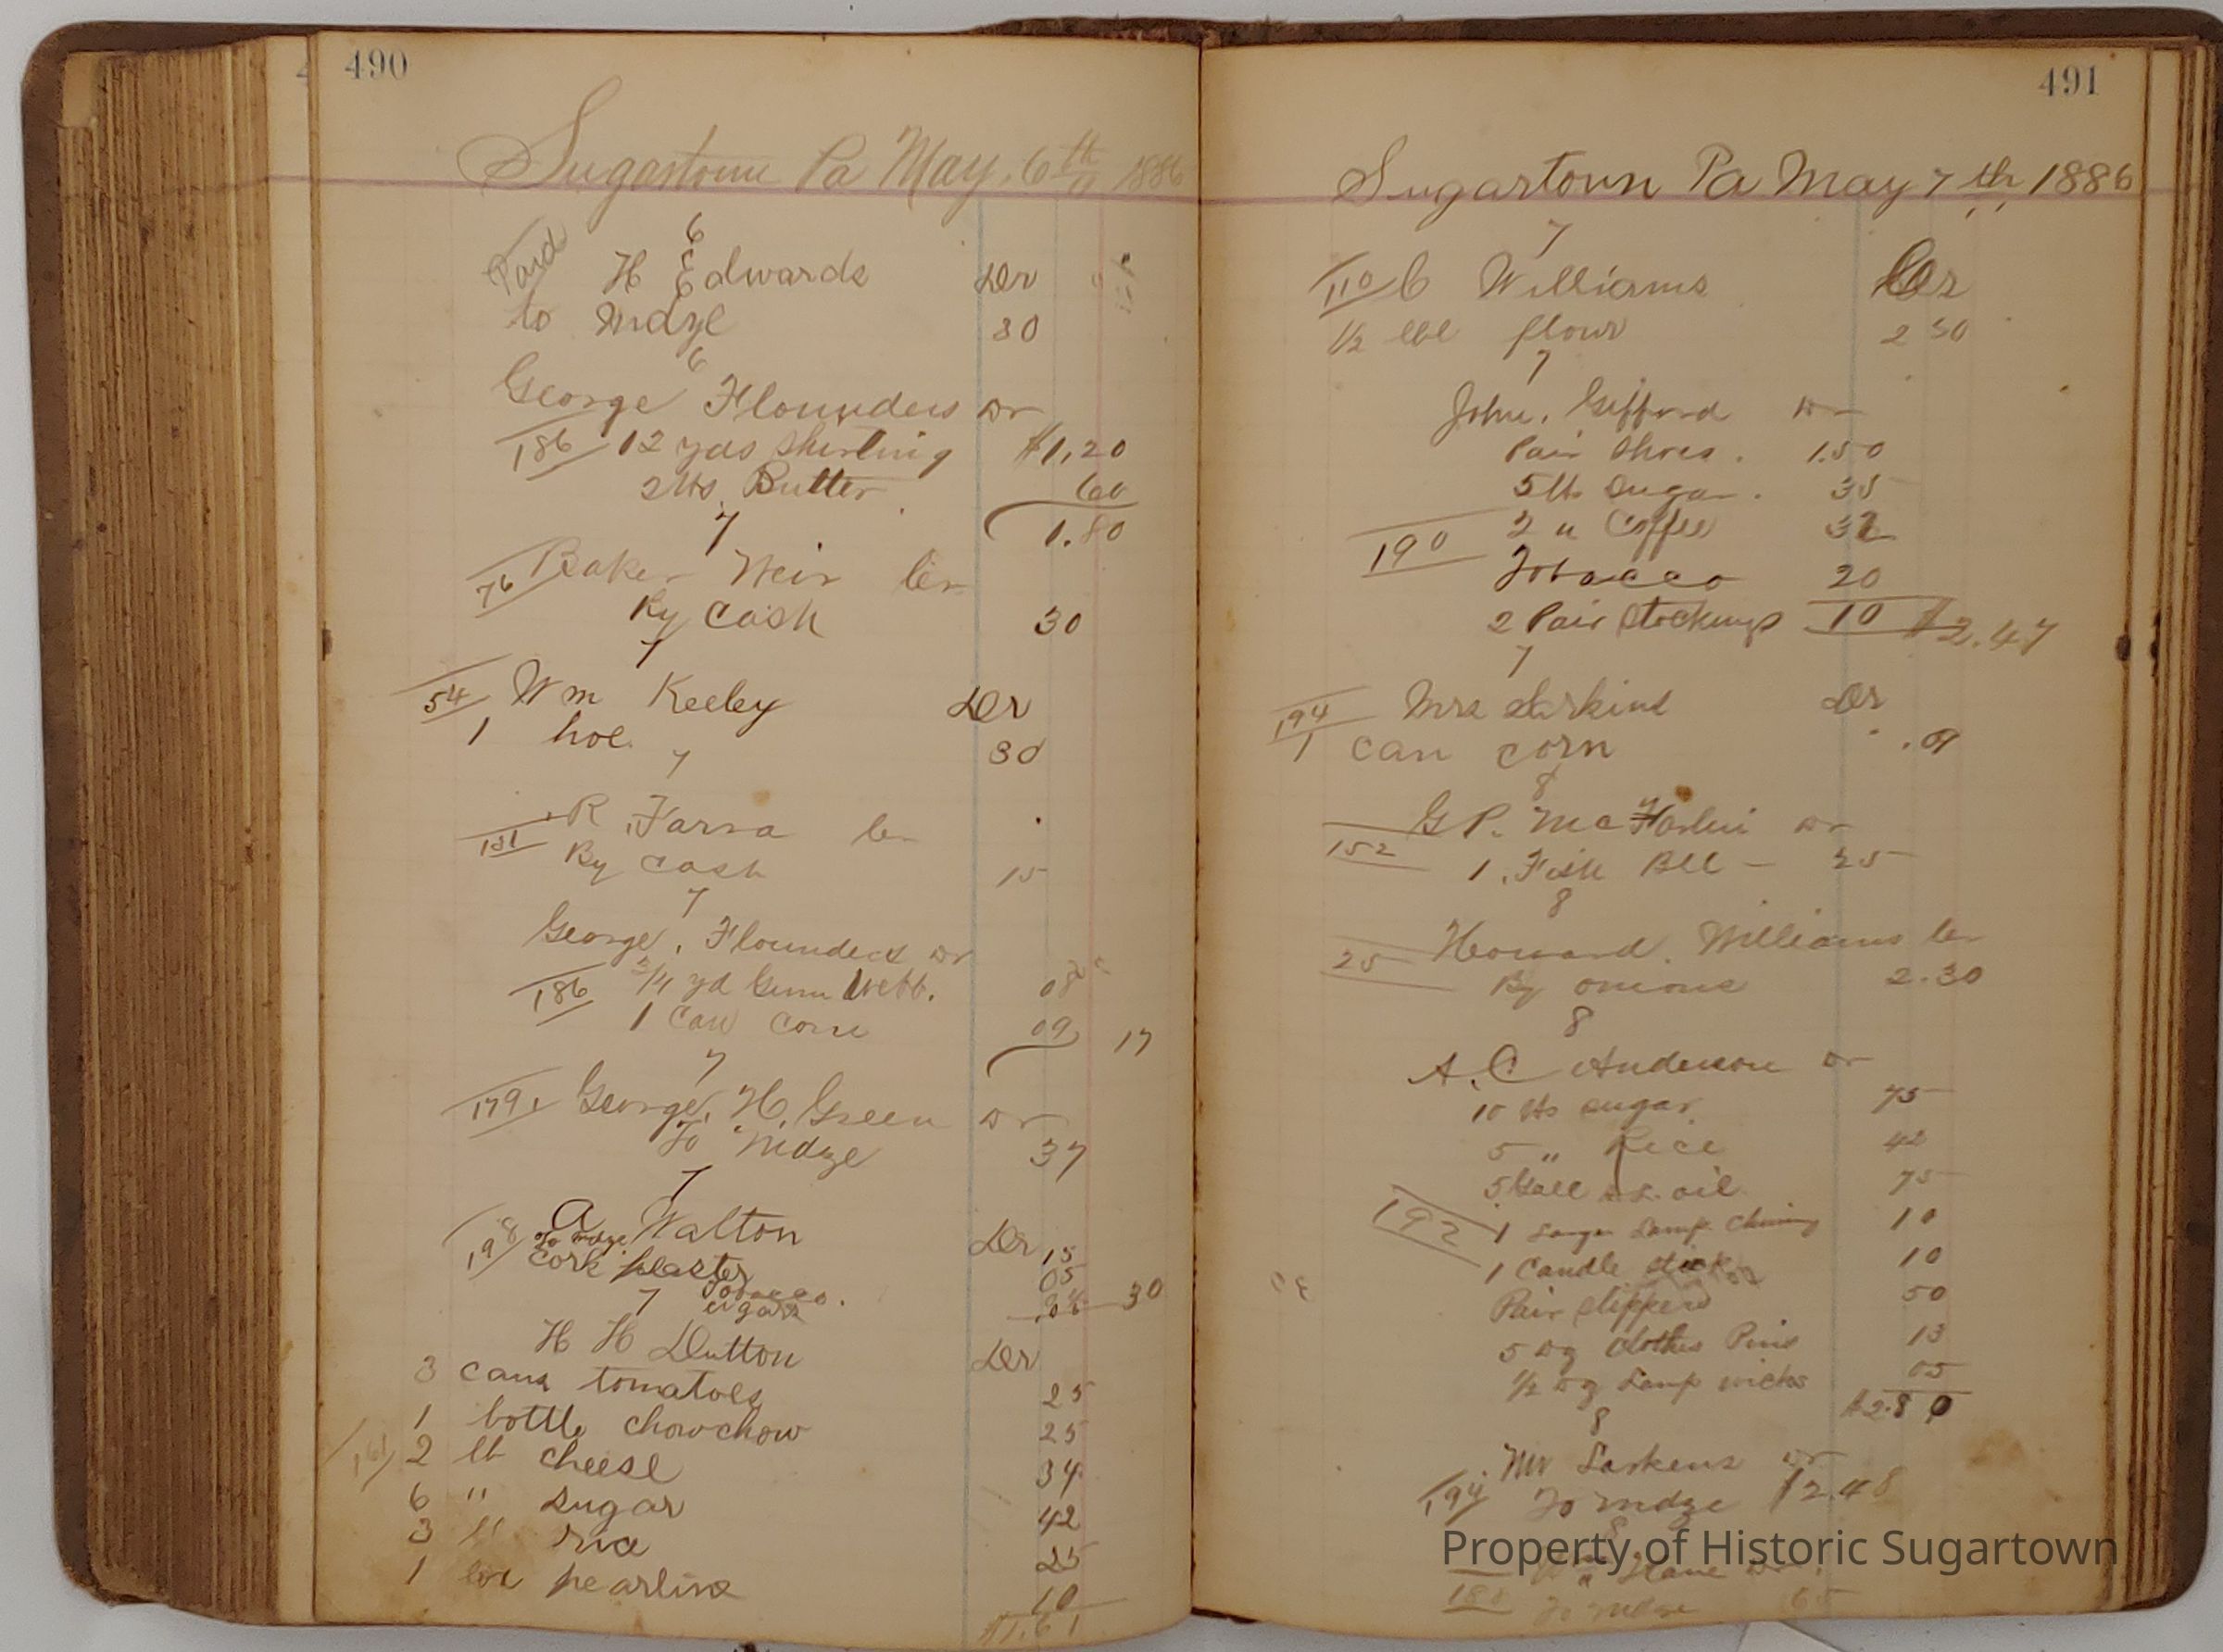 490
Sugartown Pa May. 6th 1886
6
Paid H Edwards Dr
to mdze 30
6
George Flounders Dr
186 12 yds shirting $1,20
2 lbs Butter 60
1.80
7
76 Baker Weir Cr
By Cash 30
7
54 Wm Keeley Dr
1 hoe 30
7
131 R Farra Cr
By cash 15
7
George, Flounders Dr
186 3/4 yd Gum Webb. 08
1 Can Corn 09 17
7
179 George, H, Green Dr
To mdze 37
7
198 A Walton Dr
To mdze 15
Cork plaster 05
Tobacco.
7 cigars 30
H H Dutton Dr
3 cans tomatoes 25
1 bottle chowchow 25
161 2 lb cheese 34
6 " sugar 42
3 lb rice 25
1 lb pearline 10
$1.61
491
Sugartown Pa May 7th, 1886
7
110 C Williams Cr
1/2 bbl flour 2 50
7
John, Gifford Dr
Pair Shoes. 1.50
5 lb Sugar. 35
190 2 " Coffee 32
Tobacco 20
2 Pair Stockings 10 $2.47
7
194 Mrs Larkins Dr
1 can corn .09
8
G P. McFarlin Dr
152 1. Fish Bll - 25
8
25 Howard. Williams Cr
By onions 2.30
8
A. C Anderson Dr
10 lbs sugar 75
5 " Rice 42
5 Gall oil 75
192 1 Large Lamp Chimny 10
1 Candle stick 10
Pair slippers 50
5 Dz Clothes Pins 13
1/2 Dz Lamp wicks 05
$2.80
8
Mr Larkens Dr
194 To mdze $2.48
8
Dr.
180 To mdze 65
Property of Historic Sugartown